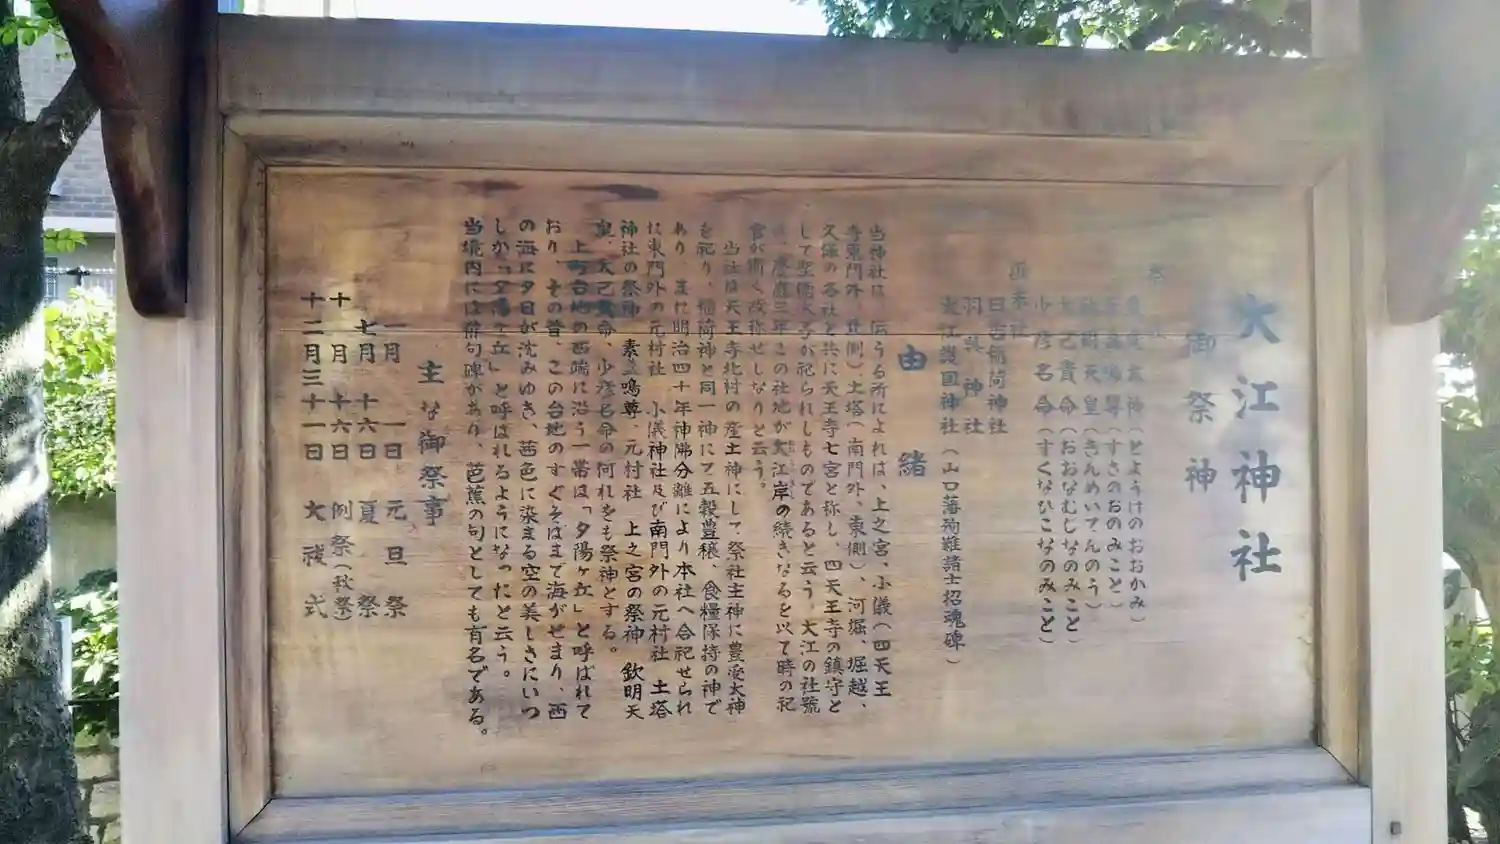 大江神社
御祭神
大神(とようけのおおかみ)
尊(すさのおのみこと)
欽明天皇(きんめいてんのう)
大己貴命(おおなむじなのみこと)
少彦名命(すくなひこなのみこと)
末社
日吉稲荷神社
羽呉神社
大江護国神社(山口藩殉難諸士招魂碑)
由緒
当神社は、伝うる所によれは、上之宮、小儀(四天王
寺東門外、北側)土塔(南門外、東側)、河堀、堀越、
久保の各社と共に天王寺七宮と称し、四天王寺の鎮守と
して聖徳太子が祀られしものであると云う。大江の社號
慶應三年この社地が大江岸の続きなるを以て時の祀
官が斯く改称せしなりと云う。
当社は天王寺北村の産土神にして祭社主神に豊受大神
を祀り、稲荷神と同一神にて五穀豊穣、食糧保持の神で
あり、又に明治四十年神佛分離により本社へ合祀せられ
に東門外の元村社 小儀神社及び南門外の元村社 土塔
神社の祭神 素盞嗚尊、元村社 上之宮の祭神 欽明天
皇、大己貴命、少彦名命の何れをも祭神とする。
上町台地の西端に沿う一帯は「夕陽ヶ丘」と呼ばれて
おり、その昔、この台地のすぐそばまで海がせまり、西
の海に夕日が沈みゆき、茜色に染まる空の美しさにいつ
しか「夕陽ヶ丘」と呼ばれるようになったと云う。
当境内には俳句碑があり、芭蕉の句としても有名である。
主な御祭事
一月 一日 元旦祭
七月 十六日 夏祭
十月 十六日 例祭(秋祭)
十二月三十一日 大祓式